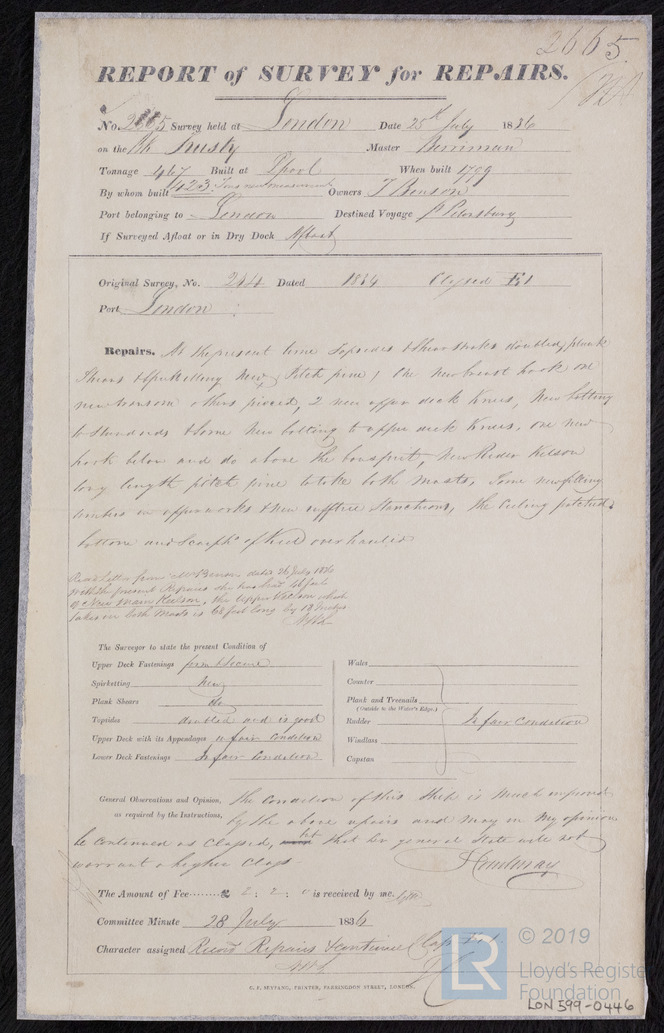 2665
REPORT of SURVEY for REPAIRS.
No. 2665 Survey held at London Date 25th July 1836
on the Bk Trusty Master Merriman
Tonnage 467 Built at Lpool When built 1799
By whom built 423 Tons new measurement Owners T Benson
Port belonging to London Destined Voyage St Petersburg
If Surveyed Afloat or in Dry Dock Afloat
Original Survey, No. 244 Dated 1834 Classed E1
Port London
Repairs. At the present time topsides & Shear Strakes doubled, plank
Shears & Spirketting new, (Pitch pine) One new breast hook one
new transom others pieced, 2 new upper deck Knees, New bolting
to Standards & Some New bolting to upper deck Knees. one new
hook below and do above the bowsprit, New Rider Kelson
long length pitch pine to take both masts, Some new filling
timbers in upperworks & New rufftree Stanchions, the Ceiling patched
bottom and Scarphs of Keel overhauled
Read Letter from Mr Benson dated 26 July 1836
With the present Repairs she has had 46 feet
of New Main Kelson, the Upper Kelson which
takes in both Masts is 68 feet long by 13 Inches
The Surveyor to state the present Condition of
Upper Deck Fastenings firm & Secure
Spirketting New
Plank Shears do
Topsides doubled and is good
Upper Deck with its Appendages in fair Condition
Lower Deck Fastenings In fair Condition
Wales
Counter
Plank and Treenails
(Outside to the Water's Edge.)
Rudder In fair Condition
Windlass
Capstan
General Observations and Opinion, the Condition of this Ship is Much improved
as required by the Instructions, by the above repairs and may in My opinion
be Continued as Classed, but that her general State will not
warrant a higher Class
The Amount of Fee........£ 2 : 2 : 0 is received by me.
Committee Minute 28 July 1836
Character assigned Record Repairs & continue Class E1
C. F. SEYFANG, PRINTER, FARRINGDON STREET, LONDON.
LR
© 2019
Lloyd's Register
Foundation
LON 599-0446